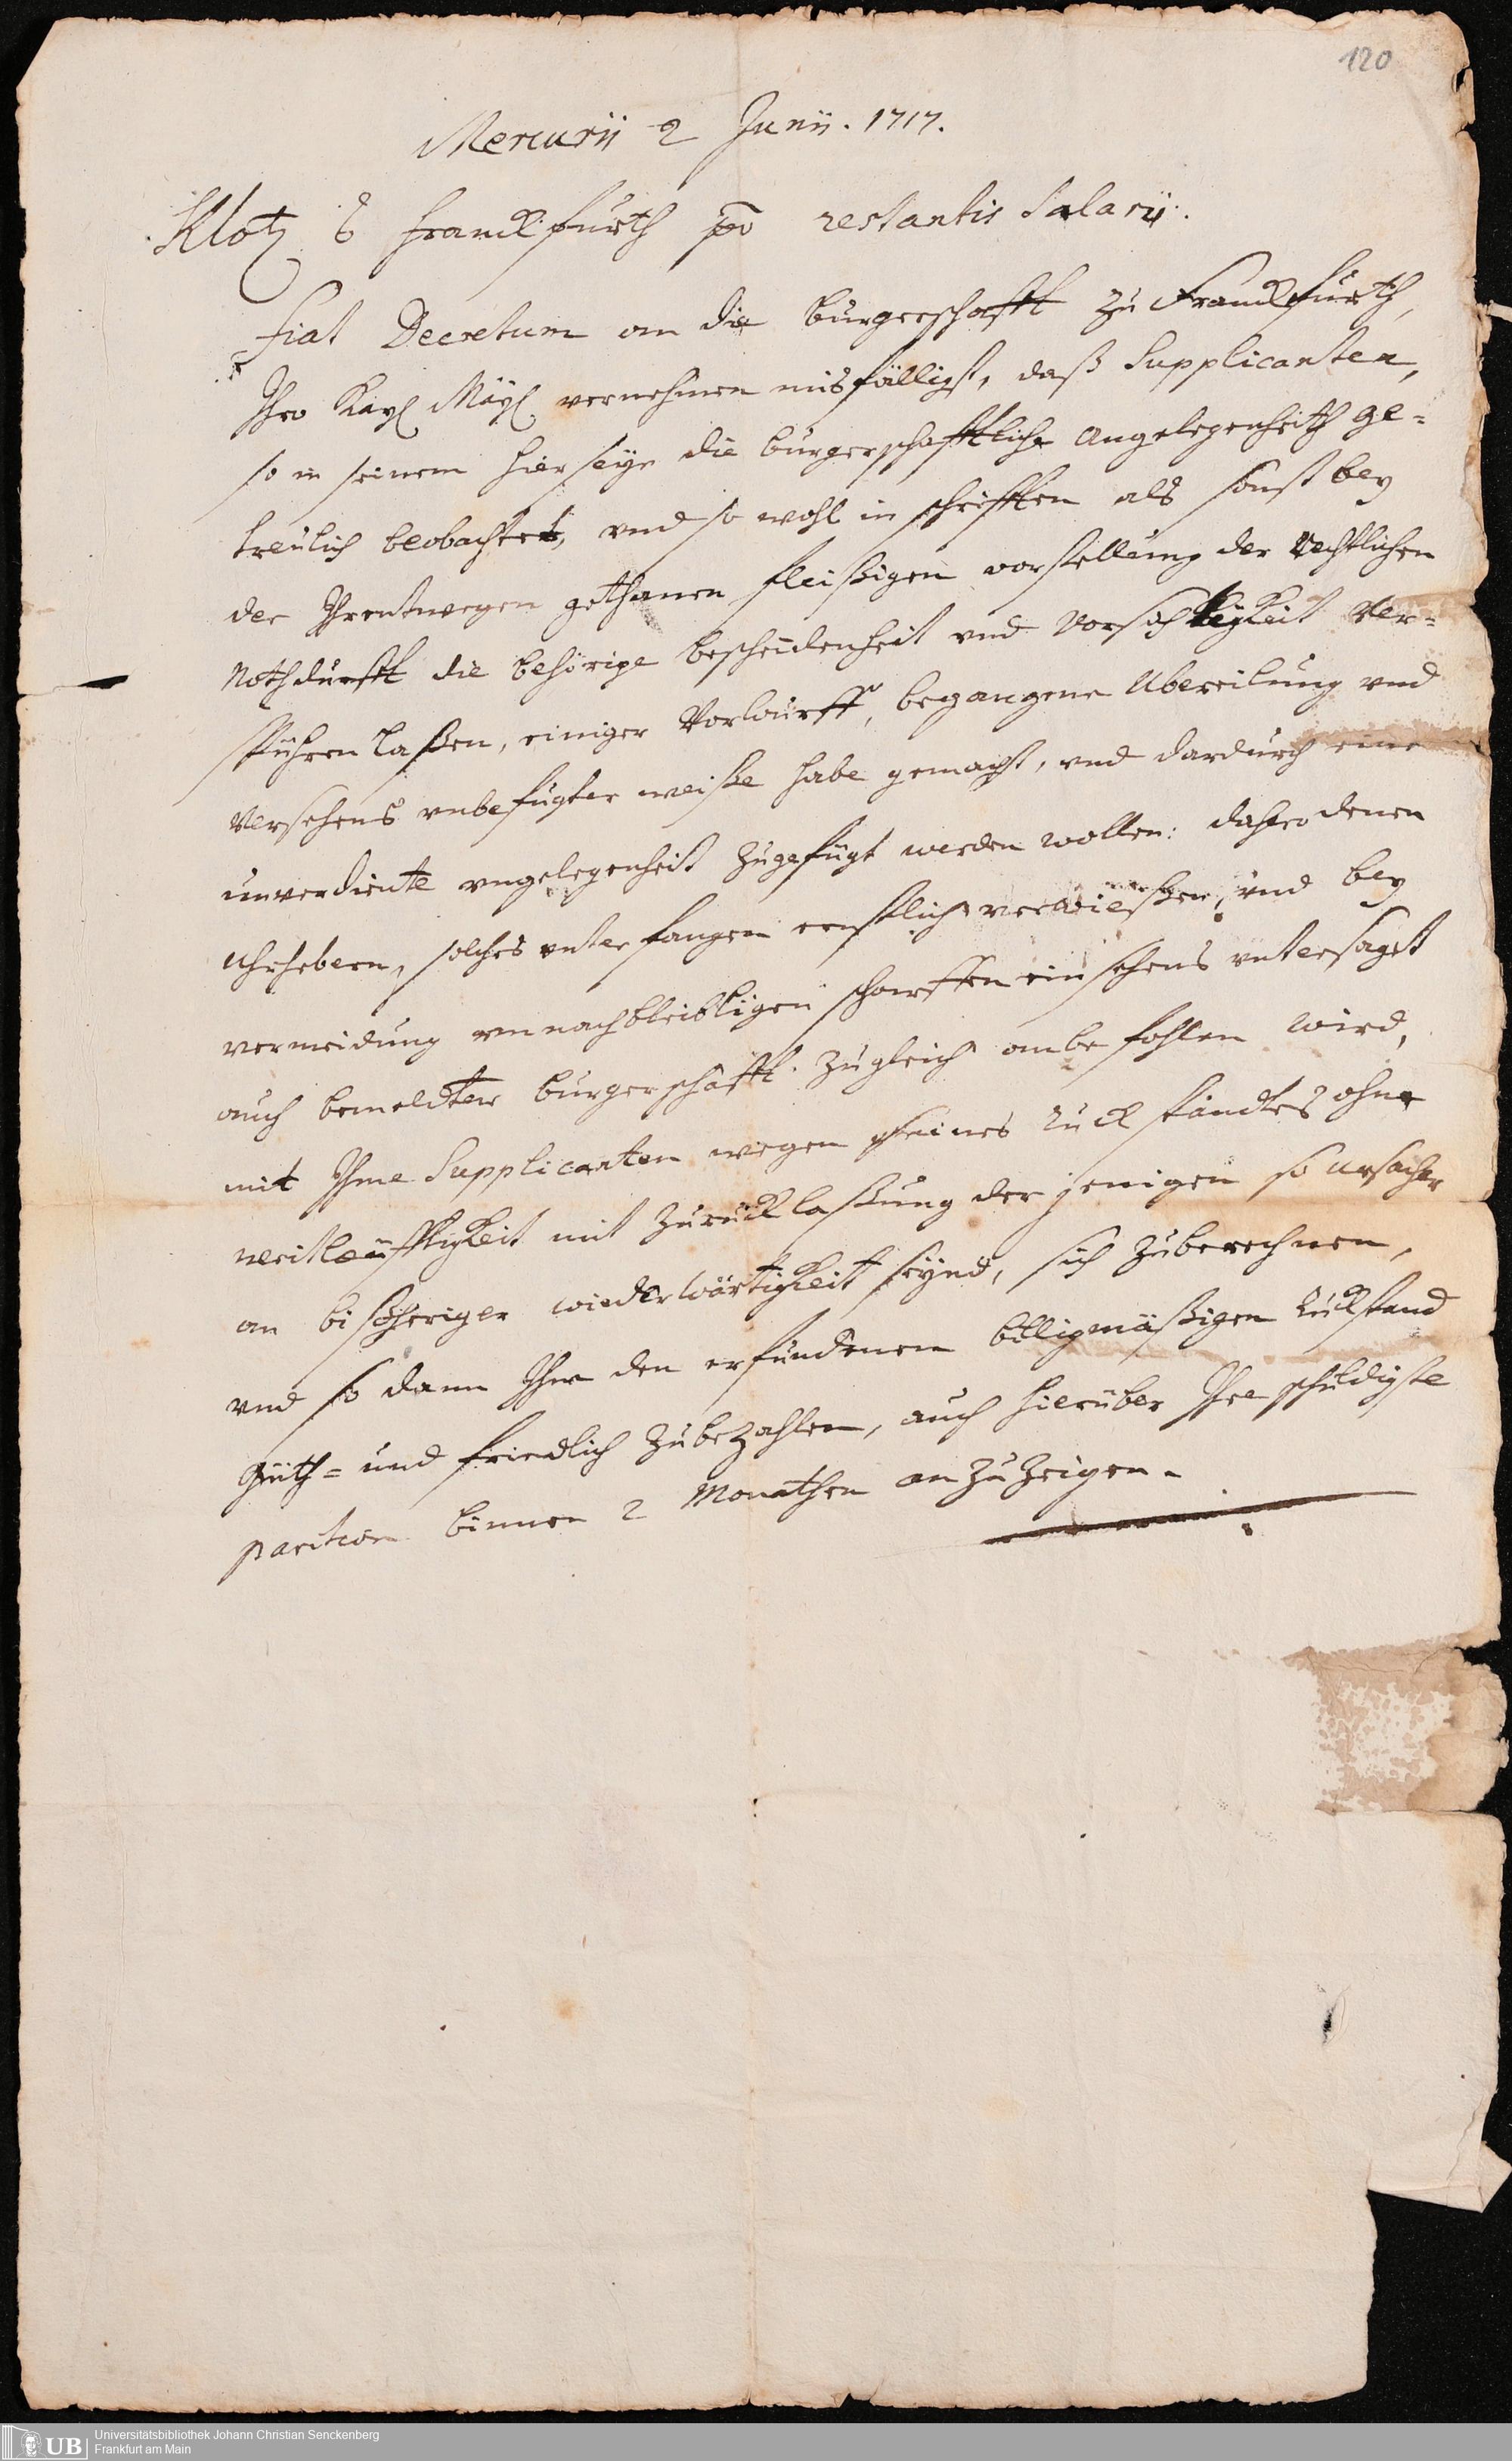 120
Mercurij 2 Junij. 1717.
Klotz Franckfurth restantis Salarij.
Fiat Decretum an die burgerschafft zu Franckfurth,
Ihro Kayl Mayl vernehmen misfälligst, daß Supplicanten,
so in seinem hierseyn die burgerschafftliche angelegenheith ge=
treülich beobachtet, vnd so wohl in schrifften als sonst bey
der Ihrentwegen gethanen fleißigen vorstellung der rechtlichen
Nothdurfft die behörige bescheidenheit vnd vorsichtigkeit ver=
spühren laßen, einiger Vorwurff, begangener Ubereilung vnd
versehens vnbefugter weiße habe gemacht, vnd dardurch eine
unverdiente vngelegenheit zugefügt werden wollen: dahero denen
Uhrhebern, solches unterfangen ernstlich verwießen, und bey
vermeidung vnnachbleibligen scharffen einsehens untersaget
auch bemeldter burgerschafft zugleich anbefohlen wird,
mit Ihme Supplicanten wegen seines ruckstandtes ohne
weitleüfftigkeit mit zurücklaßung der jenigen so ursacher
an bißheriger wiederwärtigkeit seynd, sich zuberechnen,
vnd so dann Ihm den erfundenen billigmäßigen Rückstand
güth= und friedlich zubezahlen, auch hierüber Ihre schuldigste
parition binnen 2 Monathen anzuzeigen.
UB
Universitätsbibliothek Johann Christian Senckenberg
Frankfurt am Main